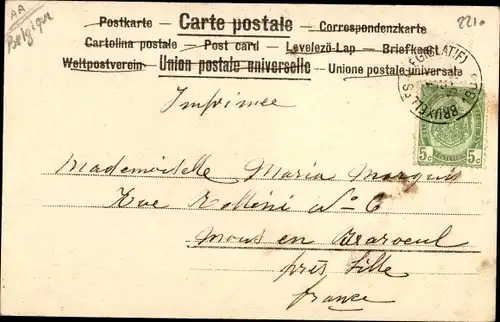 AA
Belgique
2210
Postkarte — Carte postale — Correspondenzkarte
Cartolina postale — Post card — Levelező-Lap — Briefkaart
Weltpostverein — Union postale universelle — Unione postale universale
BRUXELLES (LEGISLATIF)
5c 5c
Imprimée
Mademoiselle Maria
Rue Rollini No 6
Mons en Baroeul
près Lille
france